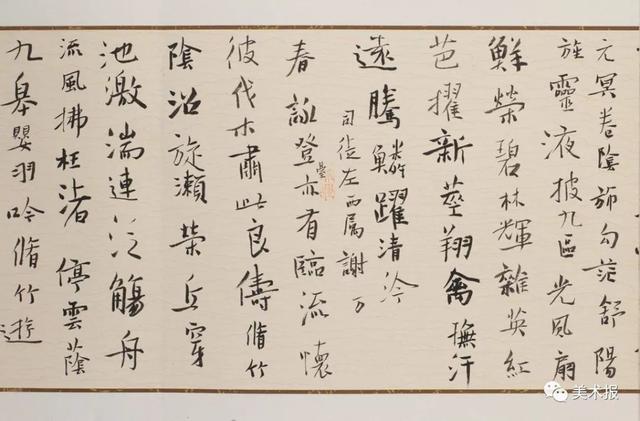 元冥卷陰旂勾芒舒陽
旌靈液披九區光風扇
鮮榮碧林輝雜英紅
芭擢新莖翔禽撫汗
遠騰鱗躍清泠
司徒左西属謝万
春詠登臺亦有臨流懷
彼伐木肅此良儔脩竹
陰沿旋瀨榮丘穿
池激湍連泛觴舟
流風拂枉渚停雲蔭
九皋嬰羽吟脩竹遊
美术报